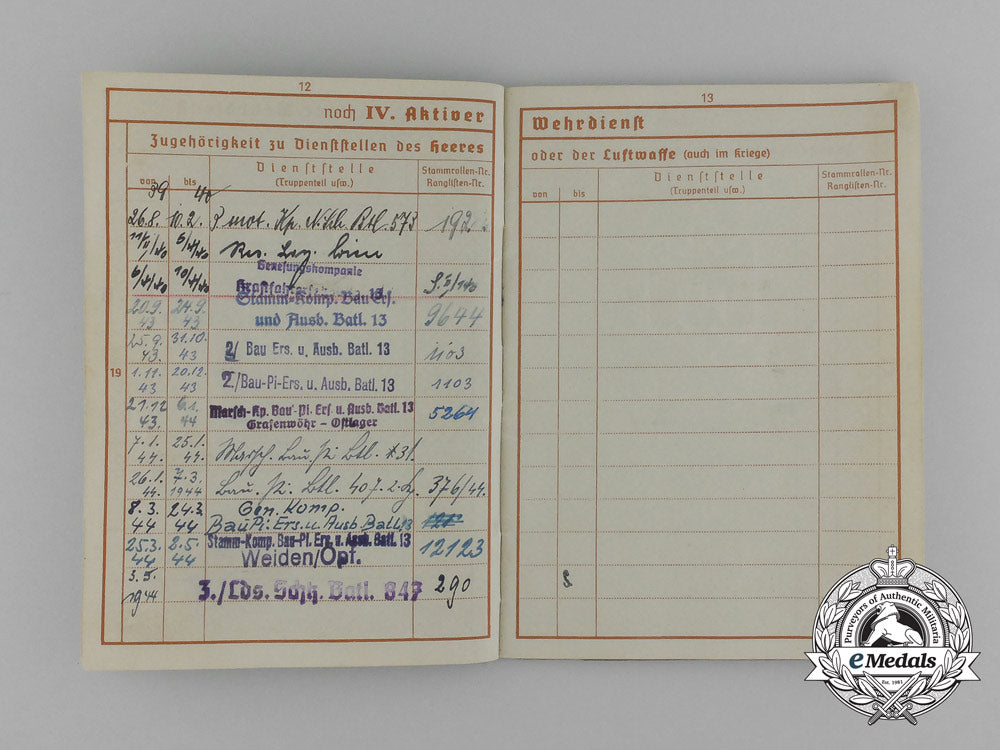 12
noch IV. Aktiver
Zugehörigkeit zu Dienststellen des Heeres
von bis Dienststelle (Truppenteil usw.) Stammrollen-Nr. Ranglisten-Nr.
39 40
26.8. 10.2. 3 mot. Kp. Btl. 573 192
11/II/40 6/4/40 Res. Laz.
Genesungskompanie
6/4/40 10/4/40
20.9. 43 24.9. 43 Stamm-Komp. Bau Ers. und Ausb. Batl. 13 9644
25.9. 43. 31.10. 43 2/ Bau Ers. u. Ausb. Batl. 13 1103
19
1.11. 43 20.12. 43 2./Bau-Pi-Ers. u. Ausb. Batl. 13 1103
21.12 43. 6.1. 44 Marsch-Kp. Bau-Pi. Ers. u. Ausb. Batl. 13 5264
Grafenwöhr - Ostlager
7.1. 44. 25.1. 44. Marsch. Bau. Pi Btl.
26.1. 44. 7.3. 1944 Bau. Pi. Btl. 407. 376/44.
8.3. 44 24.3. 44 Gen. Komp.
BauPi. Ers. u. Ausb. Batl. 13
25.3. 44 2.5. 44 Stamm-Komp. Bau-Pi. Ers. u. Ausb. Batl. 13 12123
Weiden/Opf.
3.5. 1944 3./Lds. Schtz. Batl. 847 290
13
Wehrdienst
oder der Luftwaffe (auch im Kriege)
von bis Dienststelle (Truppenteil usw.) Stammrollen-Nr. Ranglisten-Nr.
Purveyors of Authentic Militaria
eMedals
Est. 1981